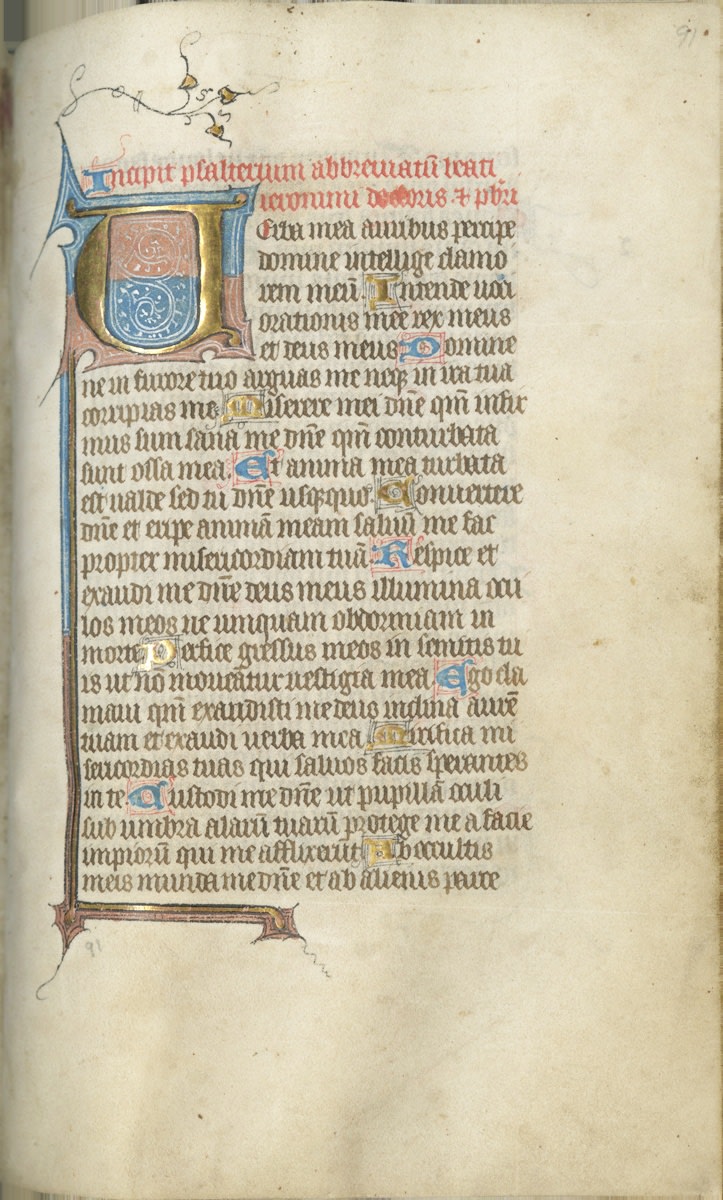 91
Incipit psalterium abbreviatū beati
ieronimi doctoris & pbri
Verba mea auribus percipe
domine intellige clamo
rem meū. Intende voci
orationis mee rex meus
et deus meus Domine
ne in furore tuo arguas me neqz in ira tua
corripias me Miserere mei dn̄e qm̄ infir
mus sum sana me dn̄e qm̄ conturbata
sunt ossa mea. Et anima mea turbata
est ualde sed tu dn̄e usqzquo. Convertere
dn̄e et eripe animā meam saluū me fac
propter misericordiam tuā Respice et
exaudi me dn̄e deus meus illumina ocu
los meos ne umquam obdormiam in
morte Perfice gressus meos in semitis tu
is ut nō moveātur uestigia mea Ego cla
maui qm̄ exaudisti me deus inclina aurē
tuam et exaudi uerba mea Mirifica mi
sericordias tuas qui saluos facis sperantes
in te. Custodi me dn̄e ut pupillā oculi
sub umbra alarū tuarū protege me a facie
impiorū qui me afflixerūt Ab occultis
meis munda me dn̄e et ab alienis parce
91